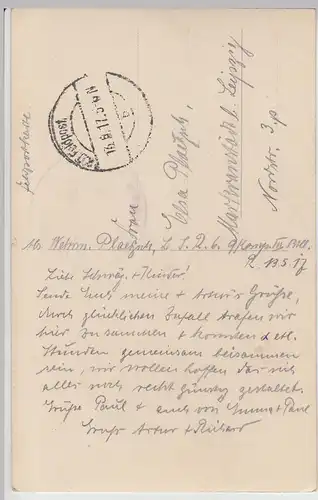 Feldpostkarte
K.D. Feldpost
16.6.17. 5-6 N
Frau
Elsa Plaetzsch,
Markranstädt b. Leipzig
Nordstr. 3 p
Abs. Wehrm. Plaetzsch, L. I. R. 6.
13.5.17
Liebe Schwäg. + Kinder!
Sende Euch meine + Arturs Grüße,
durch glücklichen Zufall trafen wir
hier zusammen + konnten etl.
Stunden gemeinsam beisammen
sein, wir wollen hoffen das sich
alles noch recht günstig gestaltet.
Grüße Paul + auch von Emma + Paul
Gruß Artur + Richard